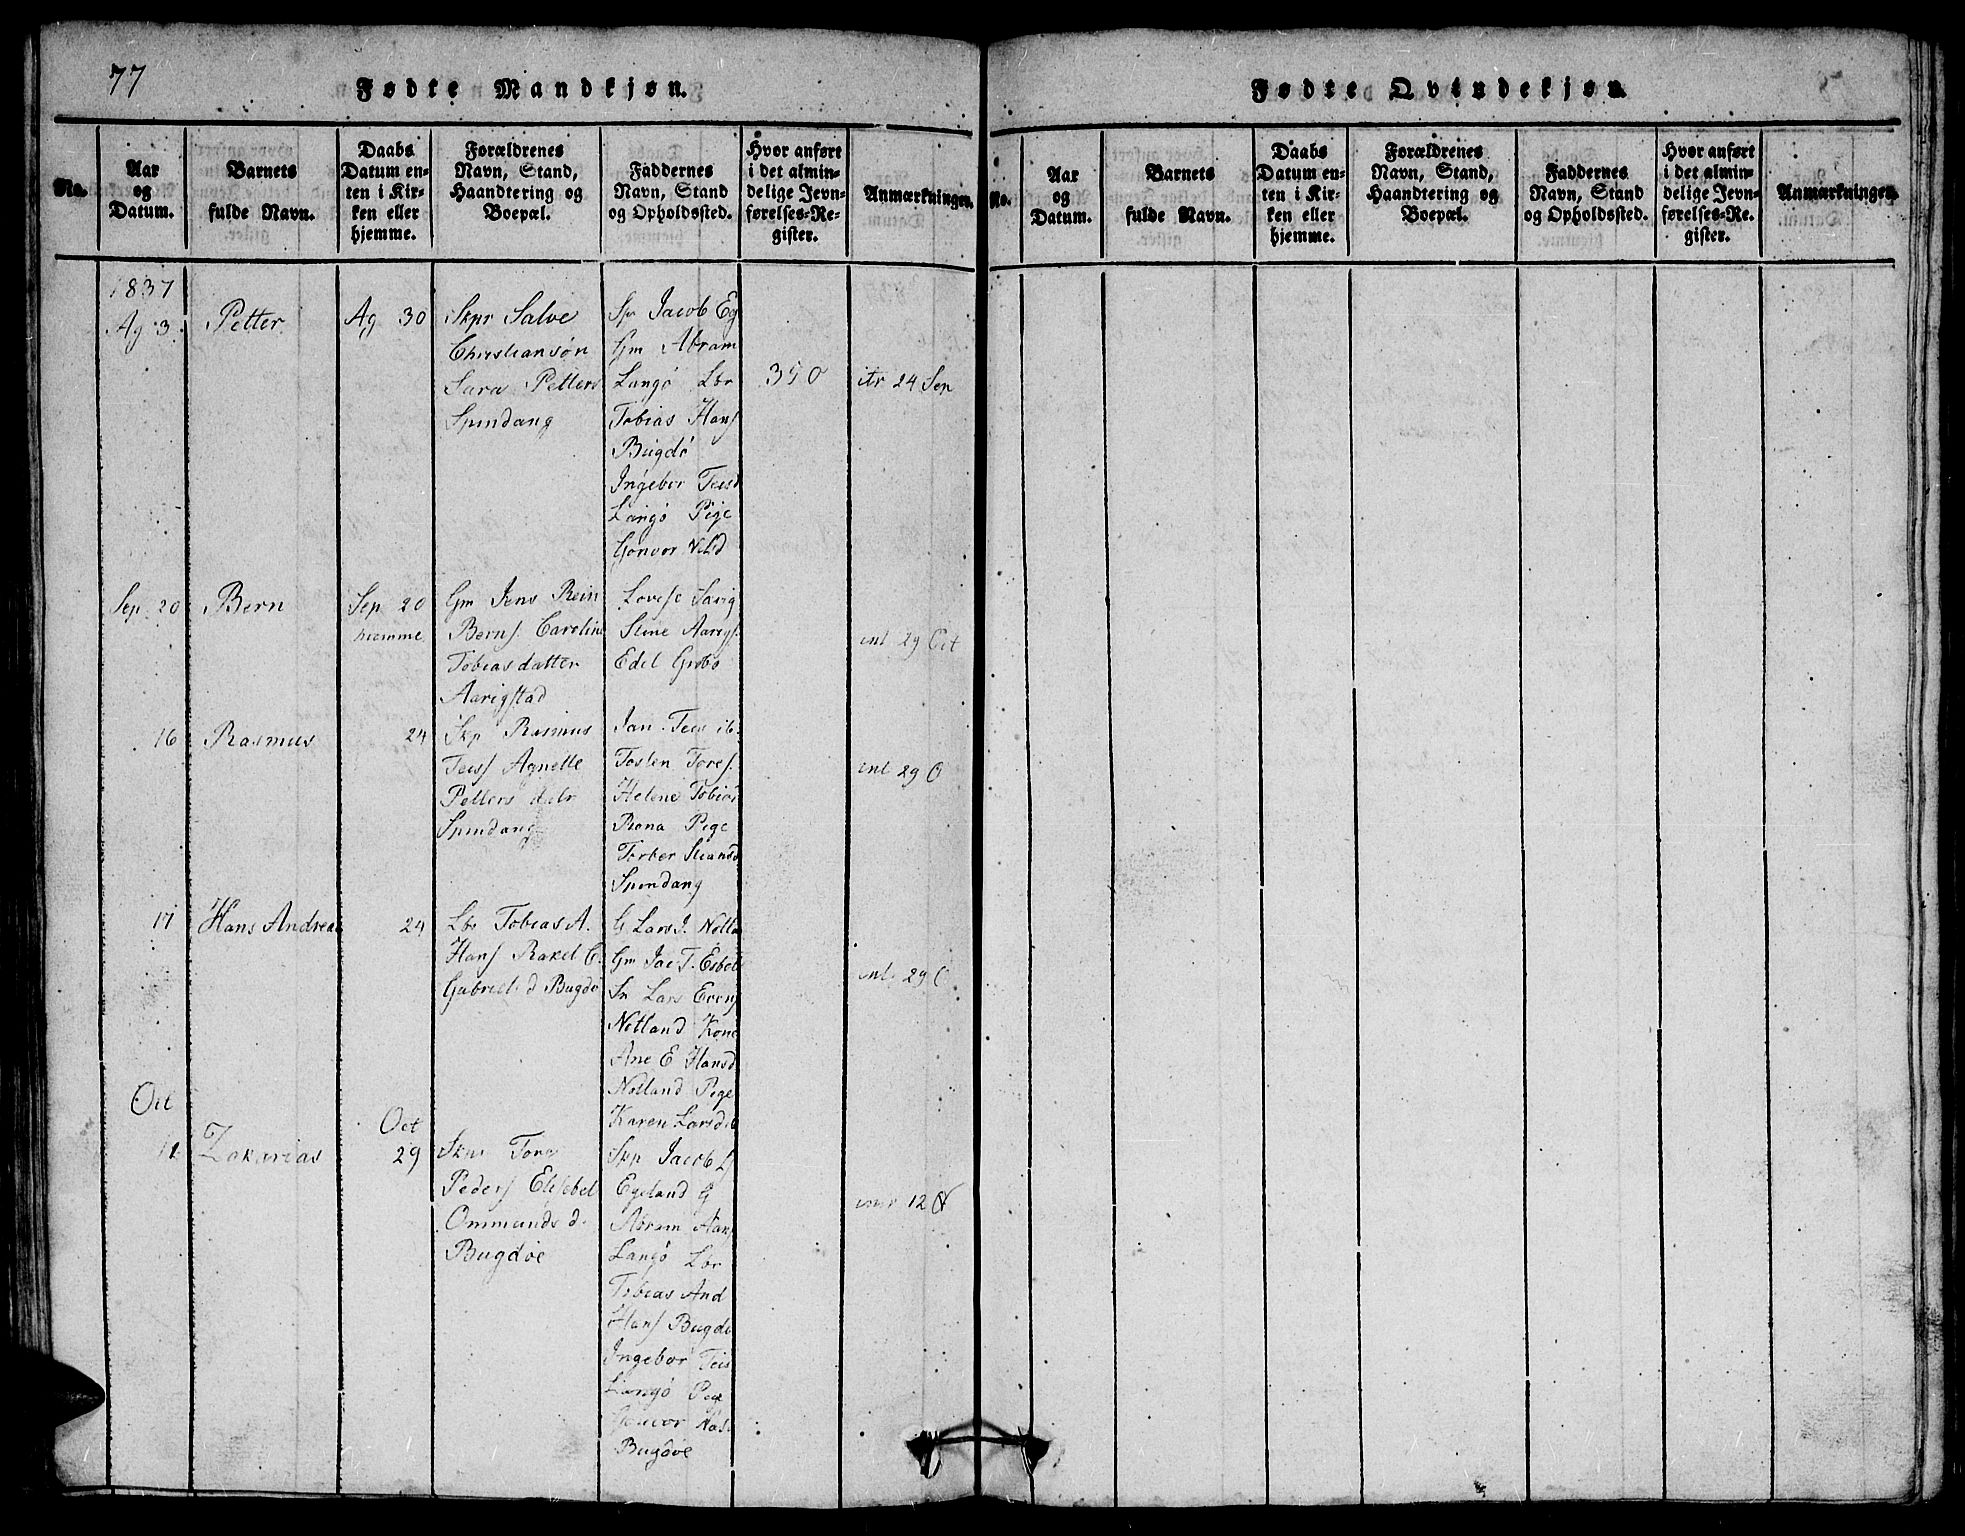 77
Fødte Mandkjøn.
No.
Aar
og
Datum.
Barnets
fulde Navn.
Daabs
Datum en-
ten i Kir-
ken eller
hjemme.
Forældrenes
Navn, Stand,
Haandtering og
Boepæl.
Faddernes
Navn, Stand
og Opholdssted.
Hvor anført
i det almin-
delige Jevn-
førelses-Re-
gister.
Anmærkninger.
1837
Ag 3.
Petter
Ag 30
Skpr Salve
Christiansøn
Sara Petters
Spindang
Sp Jacob Eg
Gm Abram
Langö Lbr
Tobias Hans
Bugdö
Ingebor Teisd
Langö Pige
Gonvor
350
itr 24 Sep
Sep. 20
Bern
Sep 20
hiemme
Gm Jens Rein
Berns. Caroline
Tobiasdatter
Aarigstad
Lovise
Stine Aarigs.
Edel
int 29 Oct
16
Rasmus
24
Skp Rasmus
Teiss Agnette
Petters datr
Spindang
Jan Teis ib.
Tosten Tores.
Helene Tobias
Rona Pige
Torber
Spindang
int 29 O
17
Hans Andreas
24
Lbr Tobias A.
Hans Rakel C.
Gabriels d Bugdö
G Lars J. Notla
Gm Jac T. Esbet
Sn Lars Evens
Notland Kone
Ane E Hansd
Notland Pige
Karen Larsd
int 29 O
Oct
12
Zakarias
Oct
29
Skpr Tore
Peders Elisebet
Ommunds d.
Bugdöe
Spr Jacob
Egeland G
Abram
Langö Lbr
Tobias And
Hans Bugdö
Ingebor Teis
Langö Pige
Gonvor
Bugdöe
12 N
Fødte Qvindekjøn.
No.
Aar
og
Datum.
Barnets
fulde Navn.
Daabs
Datum en-
ten i Kir-
ken eller
hjemme.
Forældrenes
Navn, Stand,
Haandtering og
Boepæl.
Faddernes
Navn, Stand
og Opholdssted.
Hvor anført
i det almin-
delige Jevn-
førelses-Re-
gister.
Anmærkninger.